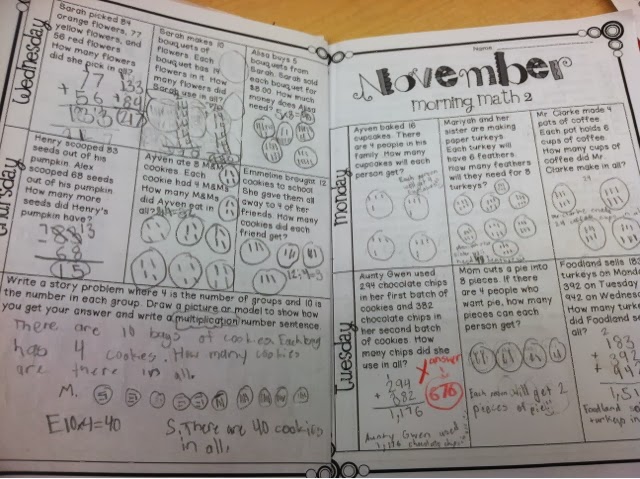 Wednesday
Sarah picked 84
orange flowers, 77
yellow flowers, and
56 red flowers.
How many flowers
did she pick in all?
77 133
+ 56 + 84
133 217
Sarah makes 10
bouquets of
flowers. Each
bouquet has 14
flowers in it. How
many flowers did
Sarah use in all?
Alisa buys 5
bouquets from
Sarah. Sarah sold
each bouquet for
$8.00. How much
money does Alisa
need?
Thursday
Henry scooped 83
seeds out of his
pumpkin. Alex
scooped 68 seeds
out of his pumpkin.
How many more
seeds did Henry's
pumpkin have?
15
Ayven ate 8 M&M
cookies. Each
cookie had 4 M&Ms.
How many M&Ms
did Ayven eat in
all?
Emmeline brought 12
cookies to school.
She gave them all
away to 4 of her
friends. How many
cookies did each
friend get?
12÷4=3
Write a story problem where 4 is the number of groups and 10 is
the number in each group. Draw a picture or model to show how
you get your answer and write a multiplication number sentence.
There are 10 bags of cookies. Each bag
has 4 cookies. How many cookies
are there in all.
M.
E10x4=40
S. There are 40 cookies
in all.
Name
November
morning math 2
Monday
Ayven baked 16
cupcakes. There
are 4 people in his
family. How many
cupcakes will each
person get?
Each person
will get 4
Mariyah and her
sister are making
paper turkeys.
Each turkey will
have 6 feathers.
How many feathers
will they need for 8
turkeys?
Mr. Clarke made 4
pots of coffee.
Each pot holds 6
cups of coffee.
How many cups of
coffee did Mr.
Clarke make in all?
Tuesday
Aunty Gwen used
294 chocolate chips
in her first batch
of cookies and 382
chocolate chips in
her second batch
of cookies. How
many chips did she
use in all?
answer
676
294
+ 382
1,176
Aunty Gwen used
1,176 chocolate chips
Mom cuts a pie into
8 pieces. If there
are 4 people who
want pie, how many
pieces can each
person get?
Each man will get 2
pieces of pie
Foodland sells 183
turkeys on Monday
392 on Tuesday
942 on Wednes
How many turke
did Foodland se
all?
+ 392
Foodland
turkeys in